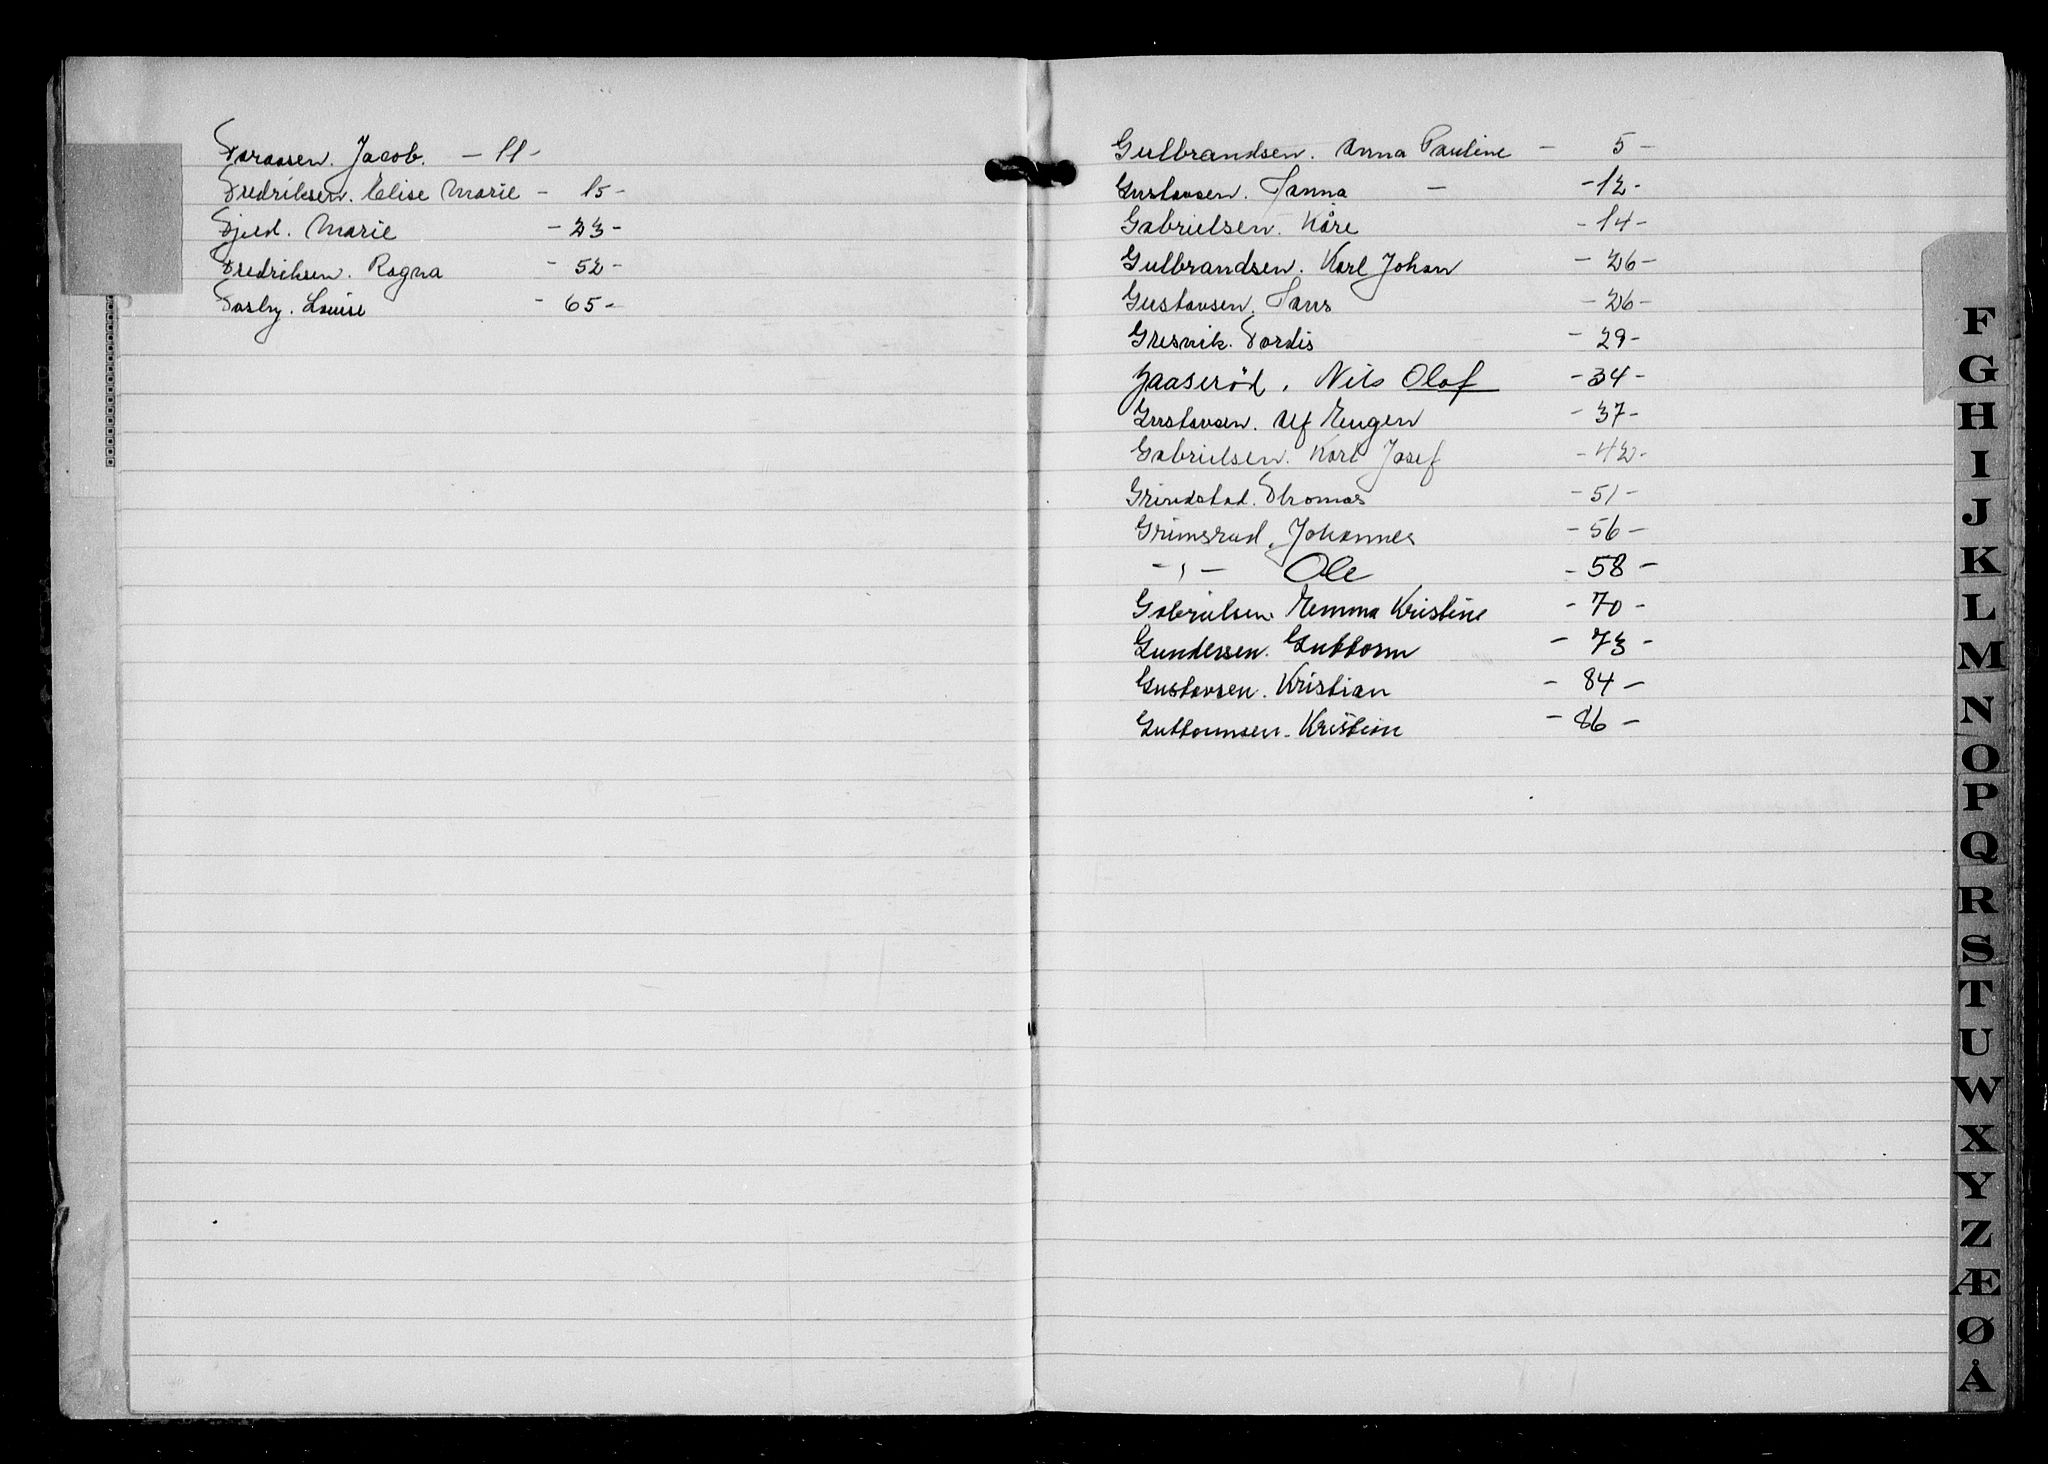 Foraasen. Jacob. - 11 -
Fredriksen. Elise Marie - 15 -
Fjeld. Marie - 23 -
Fredriksen. Ragna - 52 -
Fosby. Louise - 65 -
Gulbrandsen. Anna Pauline - 5 -
Gustavsen. Hanna - - 12 -
Gabrielsen. Kåre - 14 -
Gulbrandsen. Karl Johan - 26 -
Gustavsen. Hans - 26 -
Gresvik. Tordis - 29 -
Gaaserød. Nils Olaf - 34 -
Gustavsen. Alf Eugen - 37 -
Gabrielsen. Karl Josef - 42 -
Grindstad. Thomas - 51 -
Grimsrud. Johannes - 56 -
- " - Ole - 58 -
Gabrielsen. Emma Kristine - 70 -
Gundersen. Guttorm - 73 -
Gustavsen. Kristian - 84 -
Guttormsen. Kristine - 86 -
F
G
H
I
J
K
L
M
N
O
P
Q
R
S
T
U
W
X
Y
Z
Æ
Ø
Å